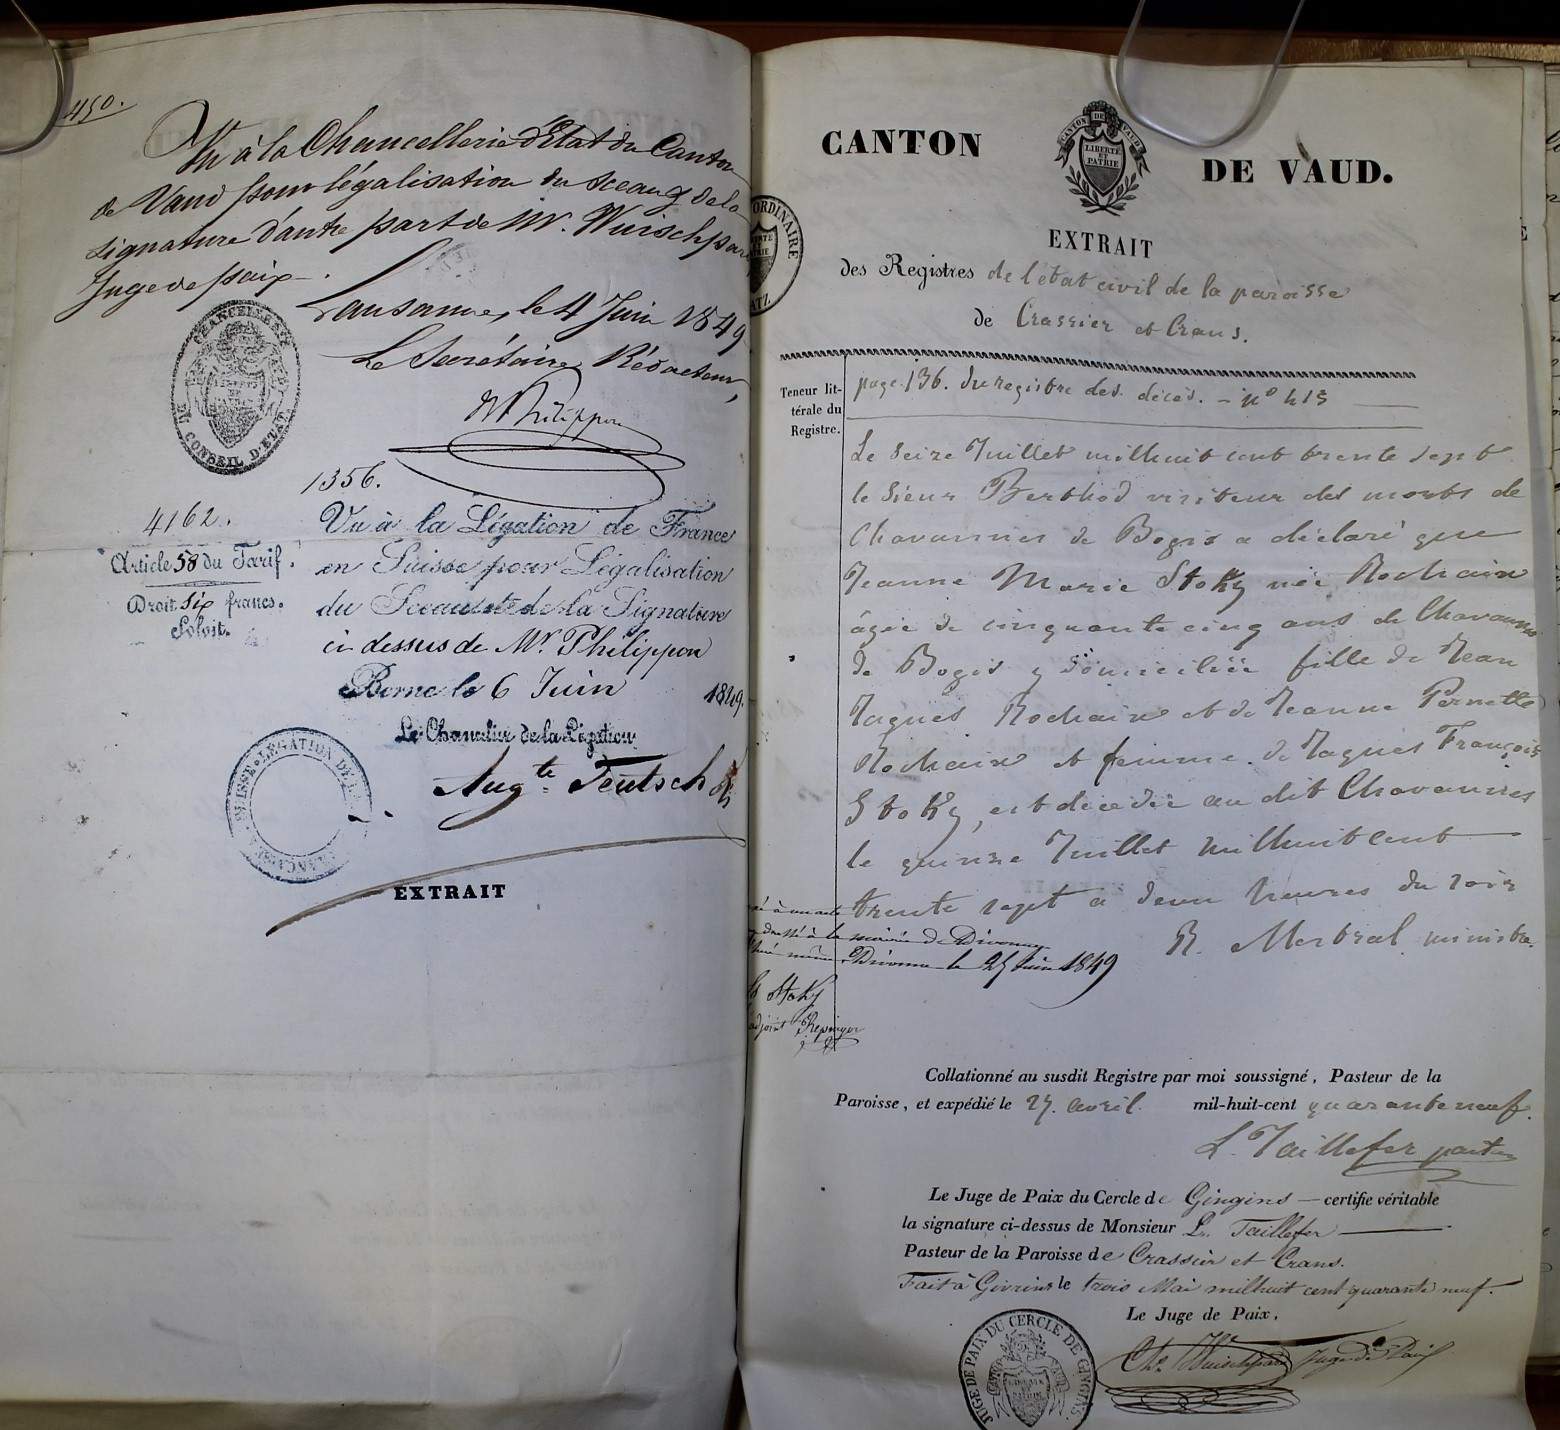 450.
Vu à la Chancellerie d'Etat du Canton
de Vaud pour légalisation du sceau & de la
signature d'autre part de Mr. Wuischpard
Juge de paix.
Lausanne, le 4 Juin 1849
Le Secrétaire Rédacteur,
Philippon
CHANCELLERIE
DU CONSEIL D'ETAT
1356.
4162.
Article 58 du Tarif.
Droit six francs.
Soloit.
Vu à la Légation de France
en Suisse pour Légalisation
du Sceau et de la Signature
ci dessus de Mr. Philippon
Berne le 6 Juin 1849.
Le Chancelier de la Légation
Augte. Teutsch
EXTRAIT
CANTON DE VAUD.
CANTON DE VAUD
LIBERTÉ
ET
PATRIE
ORDINAIRE
EXTRAIT
des Registres de l'état civil de la paroisse
de Crassier et Crans.
Teneur lit-
térale du
Registre.
page 136. du registre des décès. - No 415
Le seize Juillet milhuit cent trente sept
le Sieur Berthod visiteur des morts de
Chavannes de Bogis a déclaré que
Jeanne Marie Stoky née Rochaix
âgée de cinquante cinq ans de Chavannes
de Bogis y domiciliée fille de Jean
Jaques Rochaix et de Jeanne Pernette
Rochaix et femme de Jaques François
Stoky, est décédée au dit Chavannes
le quinze Juillet milhuitcent
trente sept à deux heures du soir
R. Mestral ministre.
à un acte
à la mairie de Divonne
Divonne le 25 Juin 1849
Stoky
Collationné au susdit Registre par moi soussigné, Pasteur de la
Paroisse, et expédié le 27. avril mil-huit-cent quarante neuf.
L. Taillefer pasteur
Le Juge de Paix du Cercle de Gingins — certifie véritable
la signature ci-dessus de Monsieur L. Taillefer
Pasteur de la Paroisse de Crassier et Crans.
Fait à Givrins le trois Mai milhuit cent quarante neuf.
Le Juge de Paix,
Chs. Wuischpard Juge de Paix
JUGE DE PAIX DU CERCLE DE GINGINS.